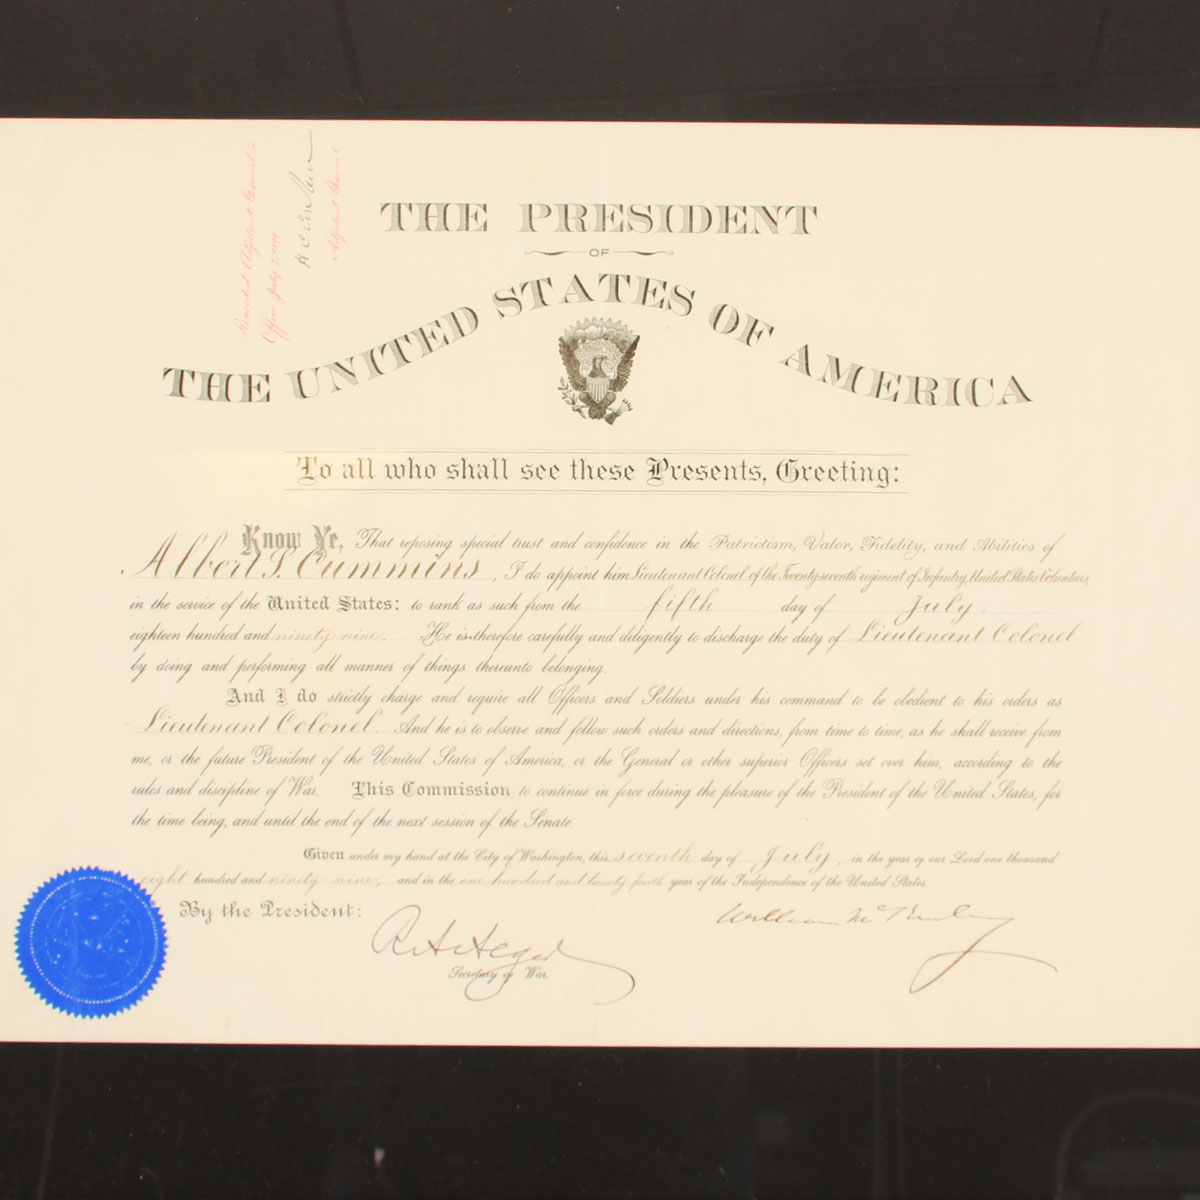 Recorded Adjutant General's
Office July 7, 1899
Adjutant General
THE PRESIDENT
OF
THE UNITED STATES OF AMERICA
To all who shall see these Presents, Greeting:
Know Ye, That reposing special trust and confidence in the Patriotism, Valor, Fidelity, and Abilities of
Albert S. Cummins, I do appoint him Lieutenant Colonel of the Twenty-seventh regiment of Infantry, United States Volunteers,
in the service of the United States: to rank as such from the fifth day of July,
eighteen hundred and ninety-nine. He is therefore carefully and diligently to discharge the duty of Lieutenant Colonel
by doing and performing all manner of things thereunto belonging.
And I do strictly charge and require all Officers and Soldiers under his command to be obedient to his orders as
Lieutenant Colonel. And he is to observe and follow such orders and directions, from time to time, as he shall receive from
me, or the future President of the United States of America, or the General or other superior Officers set over him, according to the
rules and discipline of War. This Commission to continue in force during the pleasure of the President of the United States, for
the time being, and until the end of the next session of the Senate.
Given under my hand at the City of Washington, this seventh day of July, in the year of our Lord one thousand
eight hundred and ninety-nine, and in the one hundred and twenty fourth year of the Independence of the United States.
By the President:
William McKinley
R A Alger
Secretary of War.